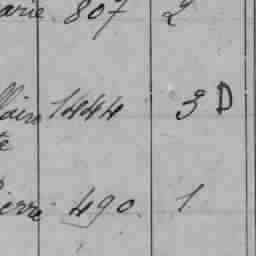 arie 807 2
laire 1444 3 D
te
ierre 490 1